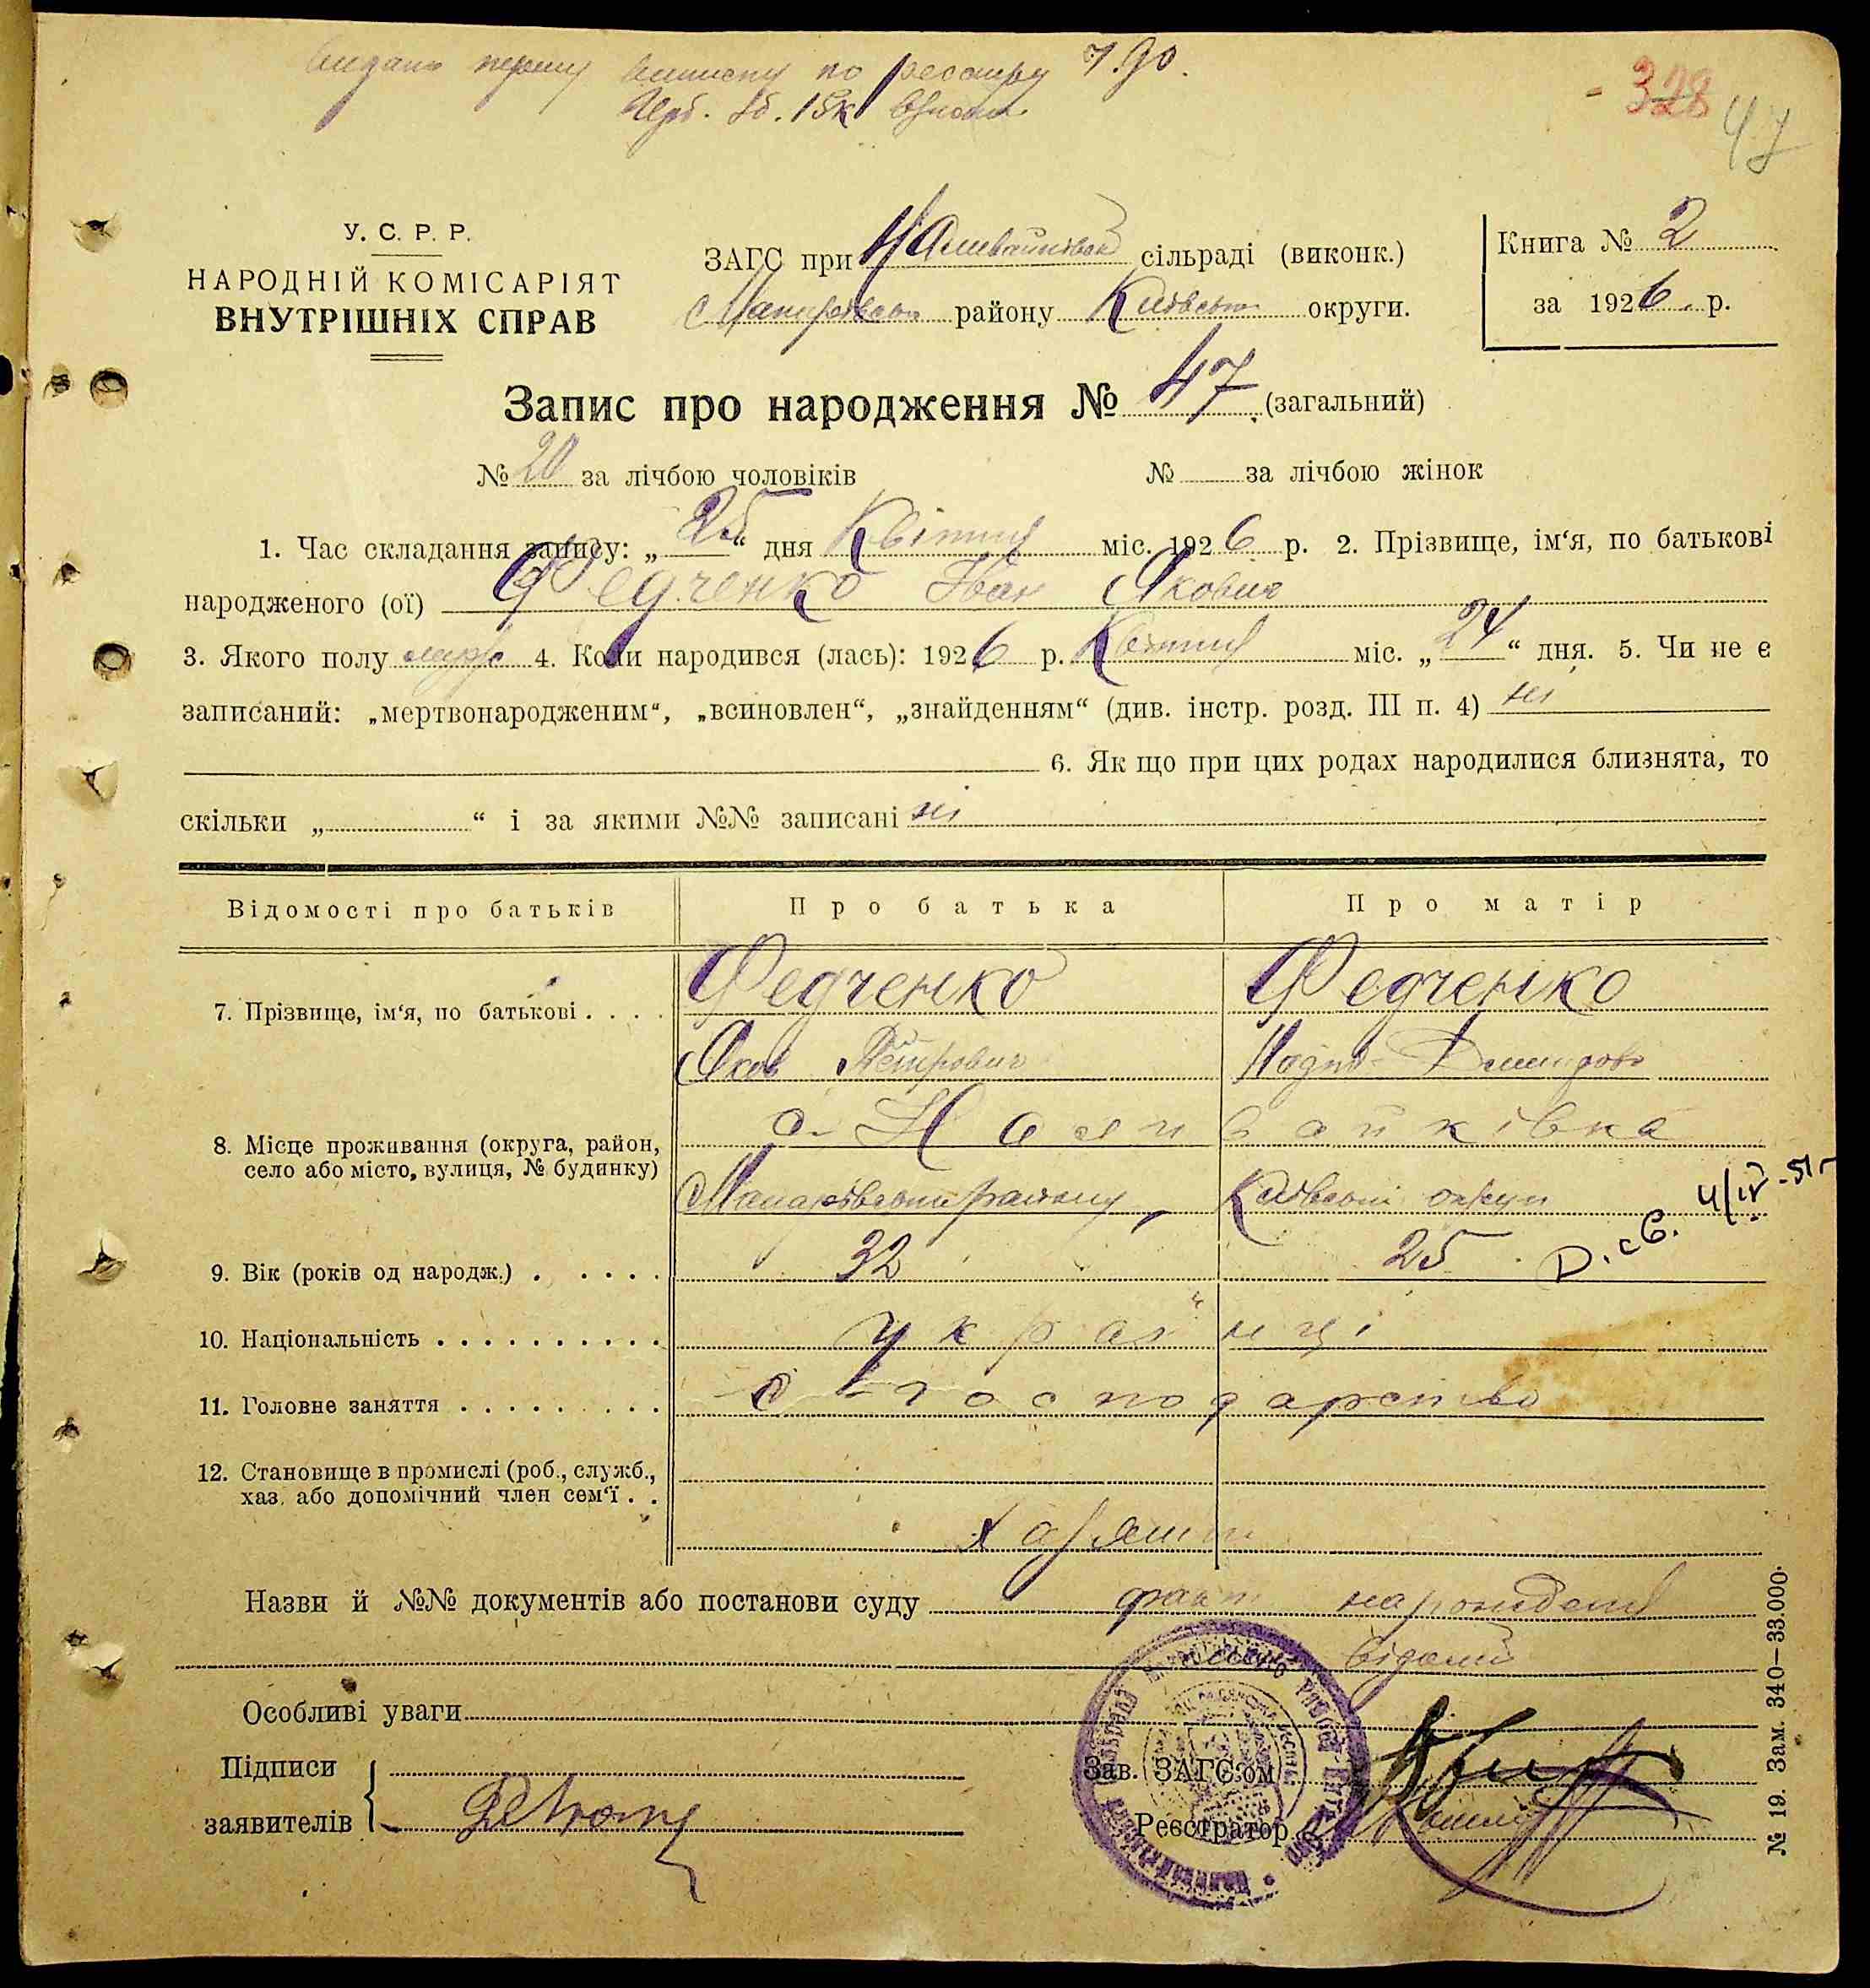 видано першу виписку по реєстру
- 328
47
У. С. Р. Р.
НАРОДНІЙ КОМІСАРІЯТ
ВНУТРІШНІХ СПРАВ
ЗАГС при сільраді (виконк.)
Макарівськ району Київськ округи.
Книга № 2
за 1926 р.
Запис про народження № 47 (загальний)
№ 20 за лічбою чоловіків № за лічбою жінок
1. Час складання запису: „25“ дня Квітня міс. 1926 р. 2. Прізвище, ім‘я, по батькові
народженого (ої) Федченко Іван Якович
3. Якого полу 4. Коли народився (лась): 1926 р. Квітня міс. „24“ дня. 5. Чи не є
записаний: „мертвонародженим“, „всиновлен“, „знайденням“ (див. інстр. розд. III п. 4) ні
6. Як що при цих родах народилися близнята, то
скільки „ “ і за якими №№ записані ні
Відомості про батьків Про батька Про матір
7. Прізвище, ім‘я, по батькові . . . . Федченко Федченко
Яків Петрович
8. Місце проживання (округа, район,
село або місто, вулиця, № будинку)
с. Наливайківка
Макарівського району, Київської округи
4/IV-51 г
9. Вік (років од народж.) . . . . . 32 25
10. Національність . . . . . . . . . . українці
11. Головне заняття . . . . . . . . . с-господарство
12. Становище в промислі (роб., служб.,
хаз. або допомічний член сем‘ї . .
Назви й №№ документів або постанови суду факт народження
відомий
Особливі уваги
Підписи
заявителів
Зав. ЗАГС‘ом
Реєстратор
№ 19. Зам. 340—33.000.